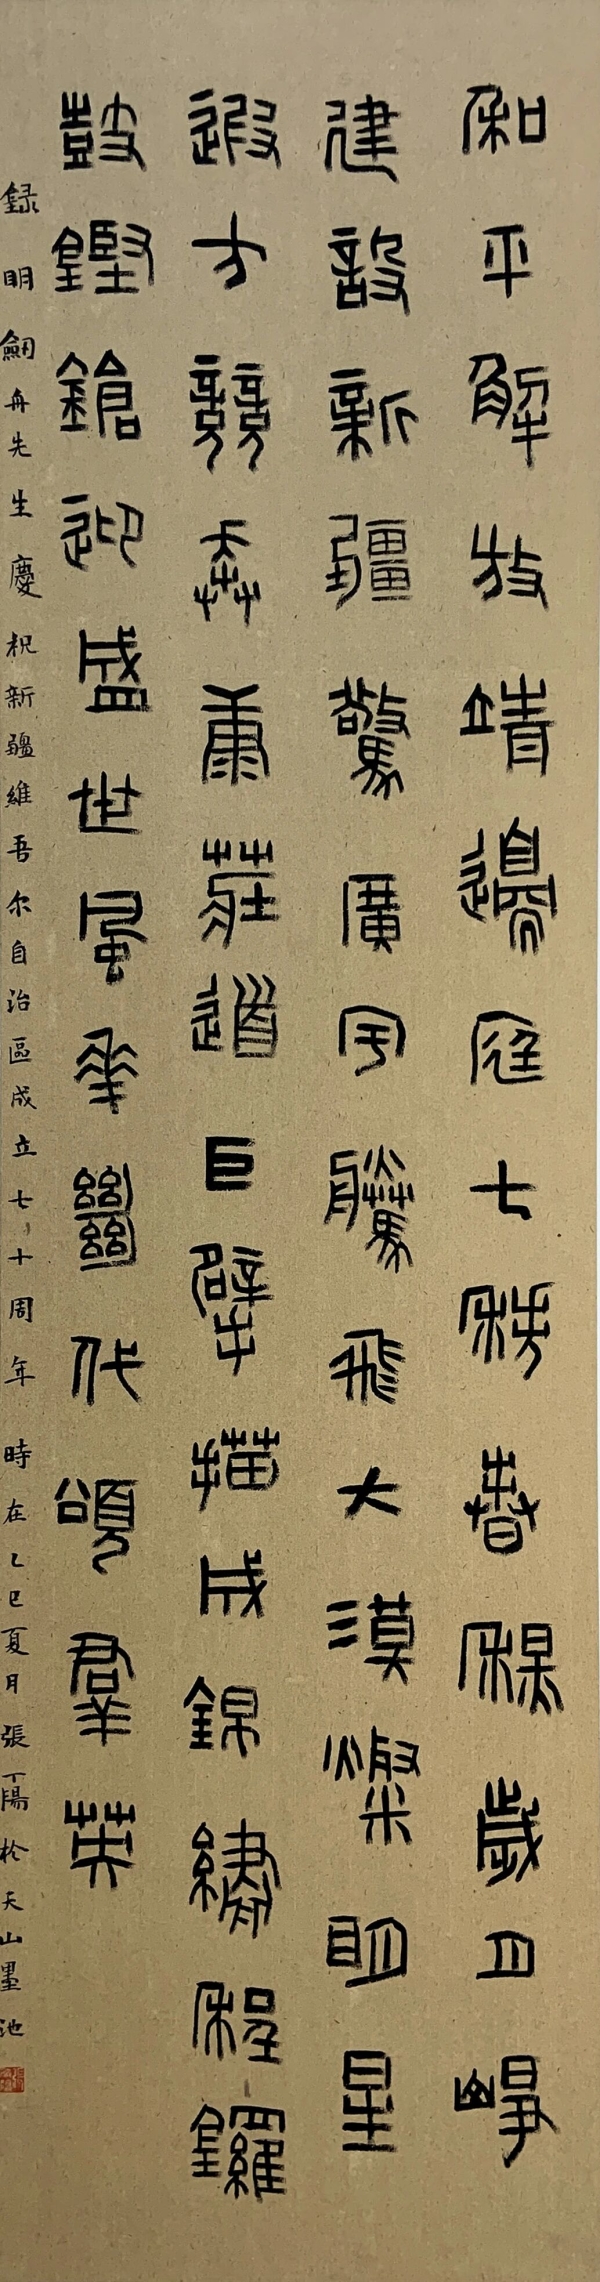 和平解放靖邊庭七秩春秌歲月崢
建設新疆驚廣宇騰飛大漠燦明星
遐方競奔康莊道巨擘描成錦繡程鑼
鼓鏗鎗迎盛世風華絕代頌群英
録明劍舟先生慶祝新疆維吾尔自治區成立七十周年 時在乙巳夏月張一陽於天山墨池